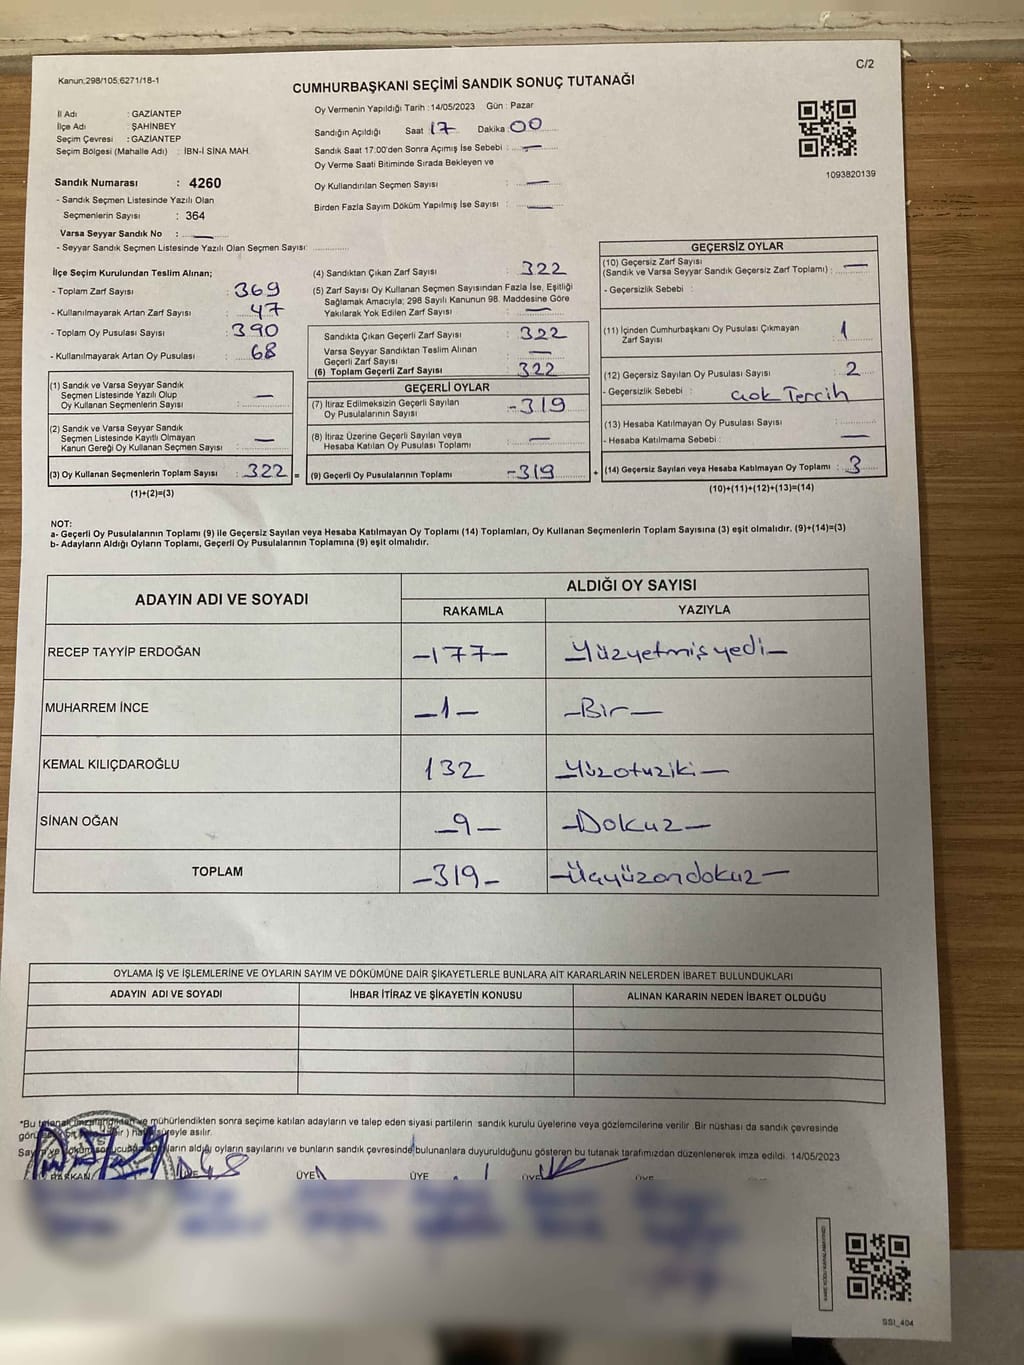 Kanun:298/105,6271/18-1
C/2
CUMHURBAŞKANI SEÇİMİ SANDIK SONUÇ TUTANAĞI
İl Adı : GAZİANTEP
İlçe Adı : ŞAHİNBEY
Seçim Çevresi : GAZİANTEP
Seçim Bölgesi (Mahalle Adı) : İBN-İ SİNA MAH.
Sandık Numarası : 4260
- Sandık Seçmen Listesinde Yazılı Olan
Seçmenlerin Sayısı : 364
Varsa Seyyar Sandık No : —
- Seyyar Sandık Seçmen Listesinde Yazılı Olan Seçmen Sayısı:
Oy Vermenin Yapıldığı Tarih : 14/05/2023 Gün : Pazar
Sandığın Açıldığı Saat : 17 Dakika : 00
Sandık Saat 17:00'den Sonra Açımış İse Sebebi : —
Oy Verme Saati Bitiminde Sırada Bekleyen ve
Oy Kullandırılan Seçmen Sayısı : —
Birden Fazla Sayım Döküm Yapılmış İse Sayısı : —
1093820139
İlçe Seçim Kurulundan Teslim Alınan;
- Toplam Zarf Sayısı : 369
- Kullanılmayarak Artan Zarf Sayısı : 47
- Toplam Oy Pusulası Sayısı : 390
- Kullanılmayarak Artan Oy Pusulası : 68
(1) Sandık ve Varsa Seyyar Sandık
Seçmen Listesinde Yazılı Olup
Oy Kullanan Seçmenlerin Sayısı : —
(2) Sandık ve Varsa Seyyar Sandık
Seçmen Listesinde Kayıtlı Olmayan
Kanun Gereği Oy Kullanan Seçmen Sayısı : —
(3) Oy Kullanan Seçmenlerin Toplam Sayısı : 322 =
(1)+(2)=(3)
(4) Sandıktan Çıkan Zarf Sayısı : 322
(5) Zarf Sayısı Oy Kullanan Seçmen Sayısından Fazla İse, Eşitliği
Sağlamak Amacıyla; 298 Sayılı Kanunun 98. Maddesine Göre
Yakılarak Yok Edilen Zarf Sayısı : —
Sandıkta Çıkan Geçerli Zarf Sayısı : 322
Varsa Seyyar Sandıktan Teslim Alınan
Geçerli Zarf Sayısı : —
(6) Toplam Geçerli Zarf Sayısı : 322
GEÇERLİ OYLAR
(7) İtiraz Edilmeksizin Geçerli Sayılan
Oy Pusulalarının Sayısı : -319
(8) İtiraz Üzerine Geçerli Sayılan veya
Hesaba Katılan Oy Pusulası Toplamı : —
(9) Geçerli Oy Pusulalarının Toplamı : -319 +
GEÇERSİZ OYLAR
(10) Geçersiz Zarf Sayısı
(Sandık ve Varsa Seyyar Sandık Geçersiz Zarf Toplamı) : —
- Geçersizlik Sebebi :
(11) İçinden Cumhurbaşkanı Oy Pusulası Çıkmayan
Zarf Sayısı : 1
(12) Geçersiz Sayılan Oy Pusulası Sayısı : 2
- Geçersizlik Sebebi : Çok Tercih
(13) Hesaba Katılmayan Oy Pusulası Sayısı :
- Hesaba Katılmama Sebebi : —
(14) Geçersiz Sayılan veya Hesaba Katılmayan Oy Toplamı : 3
(10)+(11)+(12)+(13)=(14)
NOT:
a- Geçerli Oy Pusulalarının Toplamı (9) ile Geçersiz Sayılan veya Hesaba Katılmayan Oy Toplamı (14) Toplamları, Oy Kullanan Seçmenlerin Toplam Sayısına (3) eşit olmalıdır. (9)+(14)=(3)
b- Adayların Aldığı Oyların Toplamı, Geçerli Oy Pusulalarının Toplamına (9) eşit olmalıdır.
ADAYIN ADI VE SOYADI
ALDIĞI OY SAYISI
RAKAMLA YAZIYLA
RECEP TAYYİP ERDOĞAN -177- -Yüzyetmişyedi-
MUHARREM İNCE -1- -Bir-
KEMAL KILIÇDAROĞLU 132 -Yüzotuziki-
SİNAN OĞAN -9- -Dokuz-
TOPLAM -319- -Üçyüzondokuz-
OYLAMA İŞ VE İŞLEMLERİNE VE OYLARIN SAYIM VE DÖKÜMÜNE DAİR ŞİKAYETLERLE BUNLARA AİT KARARLARIN NELERDEN İBARET BULUNDUKLARI
ADAYIN ADI VE SOYADI İHBAR İTİRAZ VE ŞİKAYETİN KONUSU ALINAN KARARIN NEDEN İBARET OLDUĞU
*Bu mühürlendikten sonra seçime katılan adayların ve talep eden siyasi partilerin sandık kurulu üyelerine veya gözlemcilerine verilir Bir nüshası da sandık çevresinde
asılır.
aldığı oyların sayılarını ve bunların sandık çevresinde bulunanlara duyurulduğunu gösteren bu tutanak tarafımızdan düzenlenerek imza edildi. 14/05/2023
BAŞKAN ÜYE ÜYE ÜYE ÜYE ÜYE
SSI_404